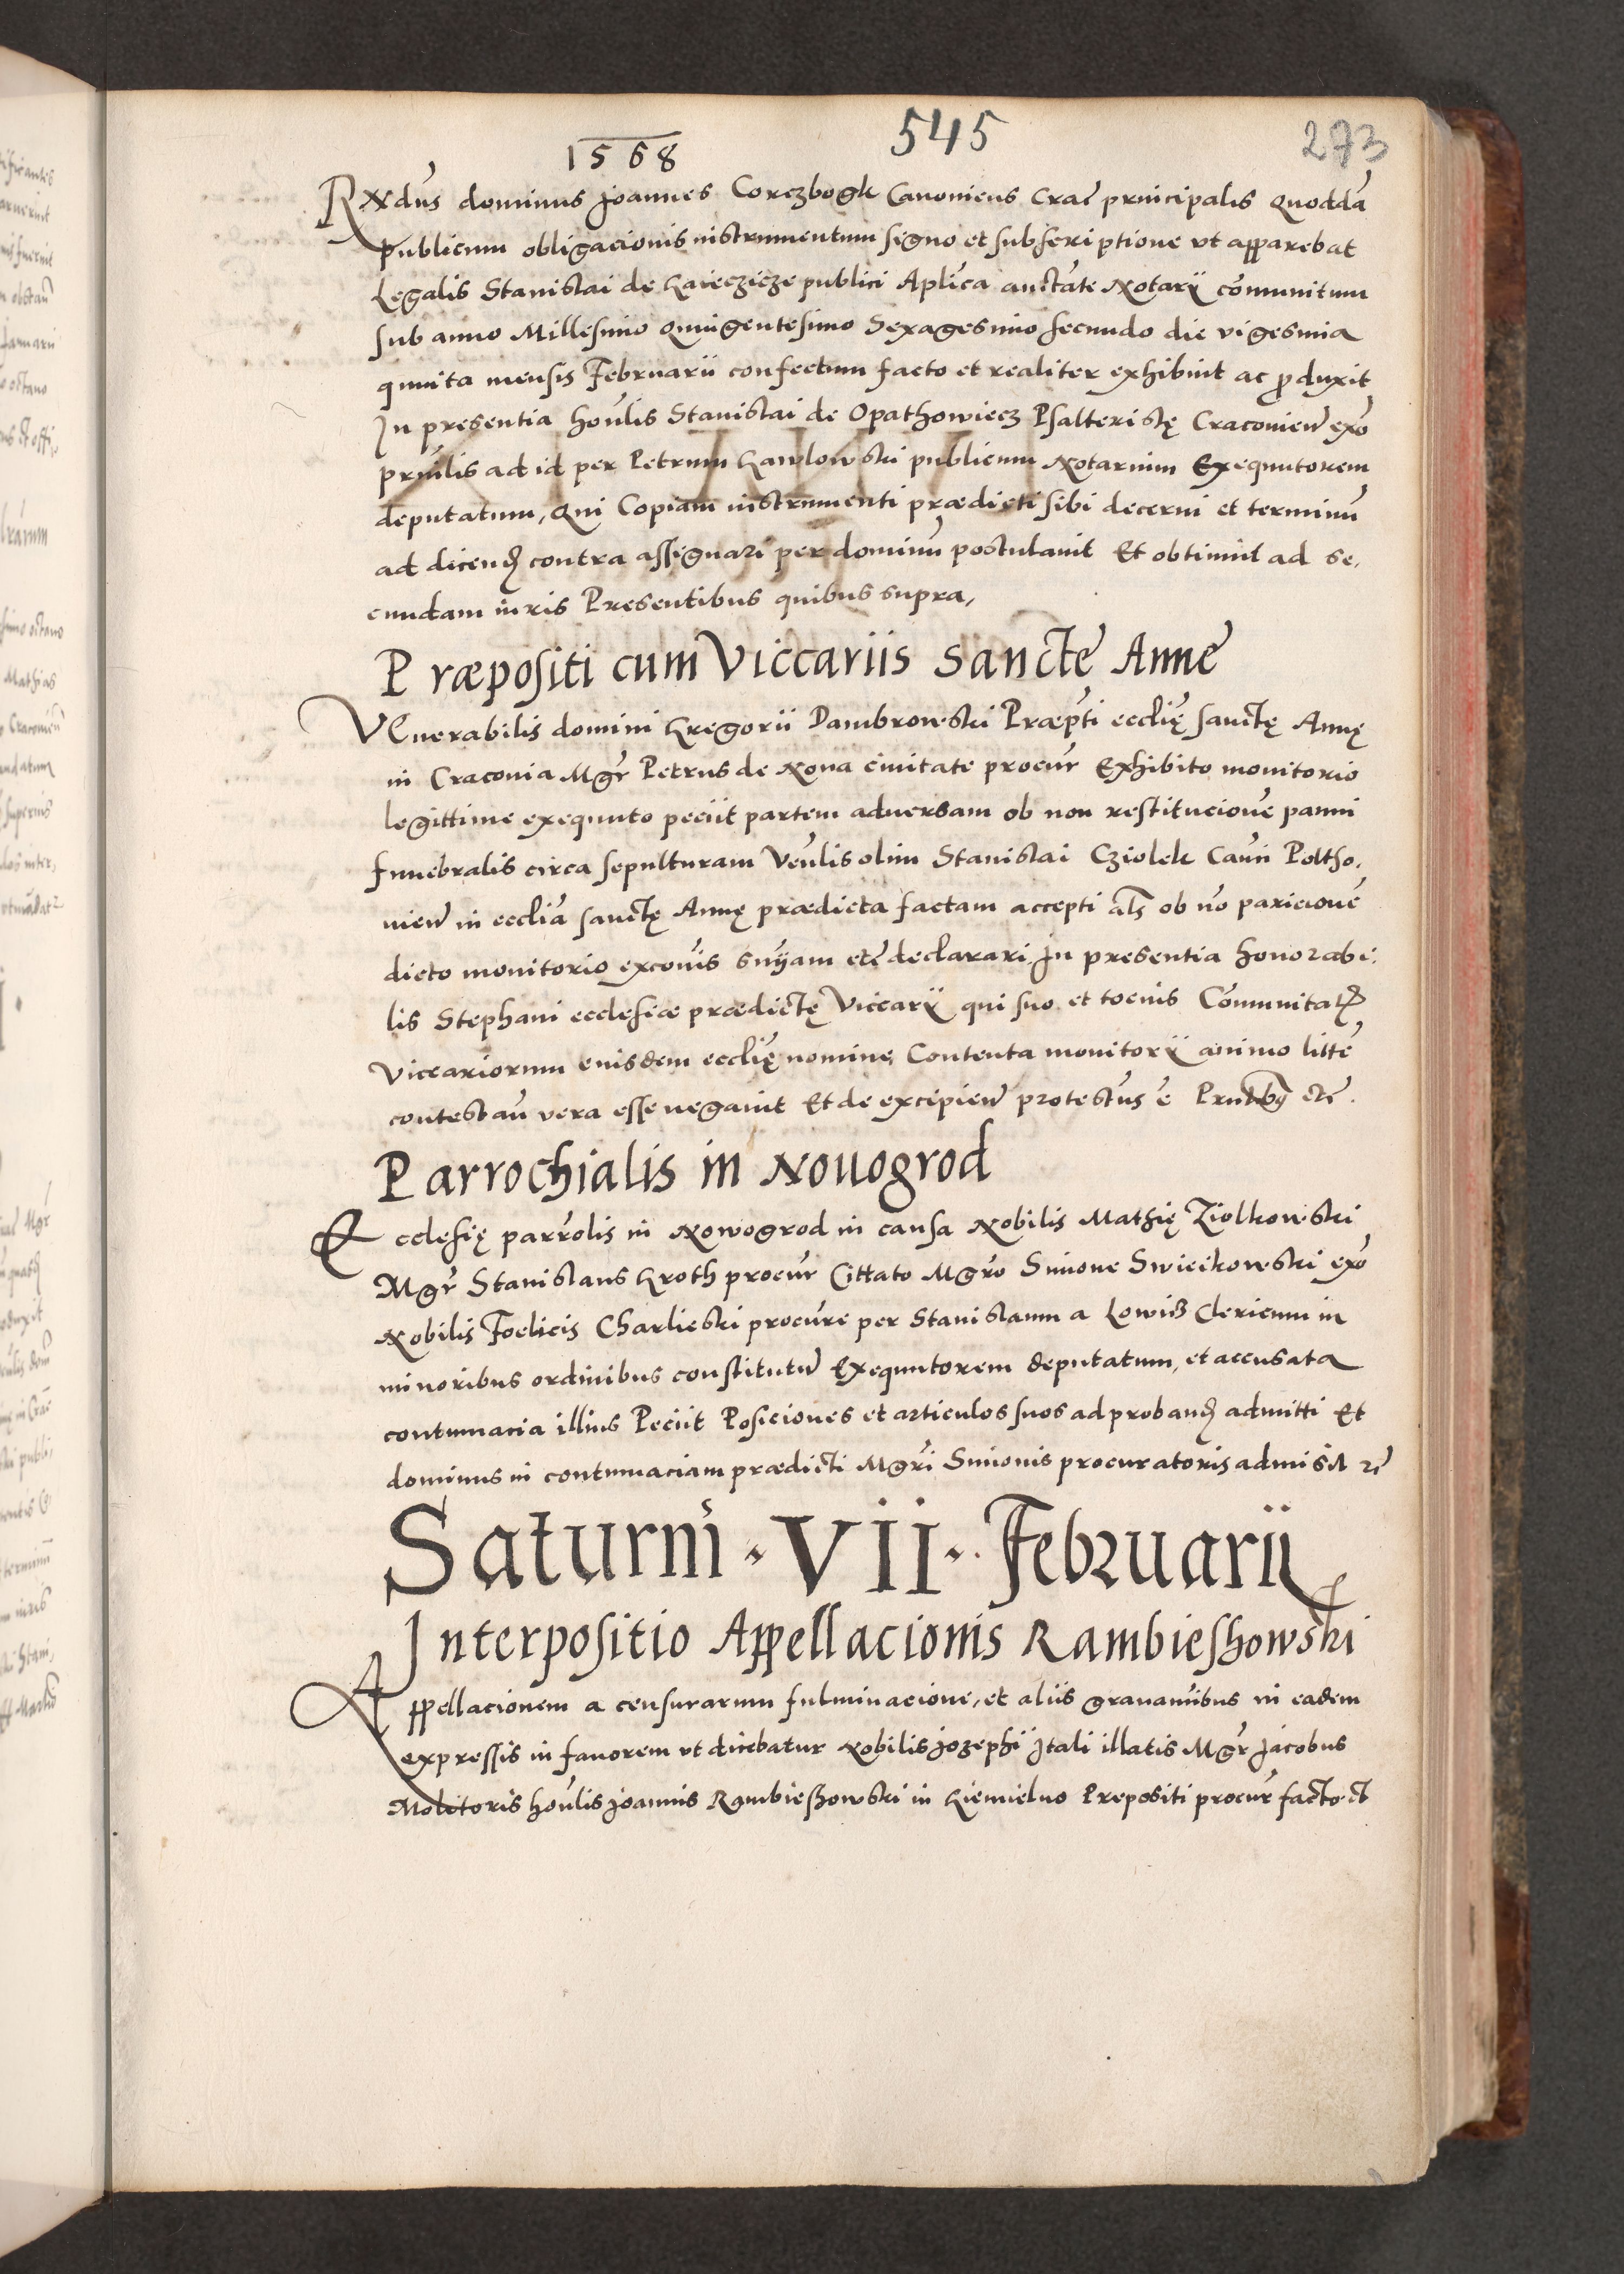 1568
545
273
RXdus dominus Joannes Coreczbogk Canonicus Crac principalis quoddã
publicum obligacionis instrumentum signo et subscriptione vt apparebat
Legalis Stanislai de publici Aplica auctate Notarij cõmunitum
sub anno Millesimo quingentesimo Sexagesimo secundo die vigesima
quinta mensis Februarii confectum facto et realiter exhibuit ac produxit
In presentia honlis Stanislai de Opathowiecz Psalteristę Cracovien exo
prinlis ad id per Petrum Gawlowski publicum Notarium Exequutorem
deputatum, Qui Copiam instrumenti prædicti sibi decerni et terminũ
ad dicend contra assignari per dominũ postulavit Et obtinuit ad se,
cundam iuris Presentibus quibus supra,
Præpositi cum Viccariis Sancte Anne
VEnerabilis domini Gregorii Dambrowski Præpti ecclię sanctę Annę
in Cracovia Mgr Petrus de Nova civitate procur Exhibito monitorio
legittime exequuto peciit partem adversam ob non restitucionē panni
funebralis circa sepulturam Venlis olim Stanislai Cziolek Cañ Poltho,
vien in ecclia sanctę Annę prædicta factam accepti als ob nõ paricionē
dicto monitorio excõis snỹam etc declarari In presentia honorabi,
lis Stephani ecclesiæ prædictę Viccarij qui suo et tocius Cõmunitatis
viccariorum eiusdem ecclię nomine Contenta monitorij animo littẽ
contestan vera esse negavit Et de excipien protestus ẽ Prntibus etc.
Parrochialis in Novogrod
Ecclesię parrolis in Nowogrod in causa Nobilis Mathię Ziolkowski
Mgr Stanislaus Groth procur Cittato Mgro Simone Swieikowski exo
Nobilis Foelicis Charlieski procure per Stanislaum a Lowiß Clericum in
minoribus ordinibus constitutũ Exequutorem deputatum, et accusata
contumacia illius Peciit Posiciones et articulos suos ad proband admitti Et
dominus in contumaciam prædicti Mgri Simonis procuratoris admisit etc
Saturni · VII · Februarii
Interpositio Appellacionis Rambieshowski
Appellacionem a censurarum fulminacione, et aliis gravamibus in eadem
expressis in favorem vt dicebatur Nobilis Jozephi Itali illatis Mgr Jacobus
Molitoris honlis Joannis Rambieshowski in Prepositi procur facto et